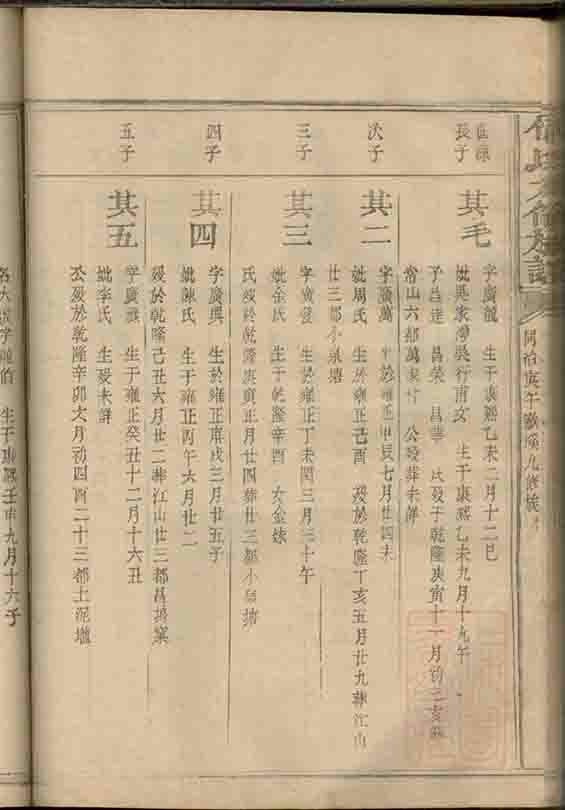 同治庚午
長子
其毛
字廣龍 生于康熙乙未二月十二巳
生于康熙乙未九月十九午
子昌達 昌榮 昌華 氏殁于乾隆庚寅十一月初三亥
常山六都 公殁葬未詳
次子
其二
字廣萬 生於雍正甲辰七月廿四未
妣周氏 生於雍正己酉 殁於乾隆丁亥五月廿九葬江山
廿三都小泉塘
三子
其三
字廣發 生於雍正丁未閏三月三十午
妣余氏 生于乾隆辛酉 女金妹
氏殁於乾隆庚寅正月廿四葬廿三都小泉塘
四子
其四
字廣興 生於雍正庚戌三月廿五子
妣陳氏 生于雍正丙午六月廿二
殁於乾隆己丑六月廿二葬江山廿三都昌塘塢
五子
其五
字廣 生于雍正癸丑十二月十六丑
妣李氏 生殁未詳
公殁於乾隆辛卯六月初四酉二十三都土泥壠
生于康熙壬申九月十六子